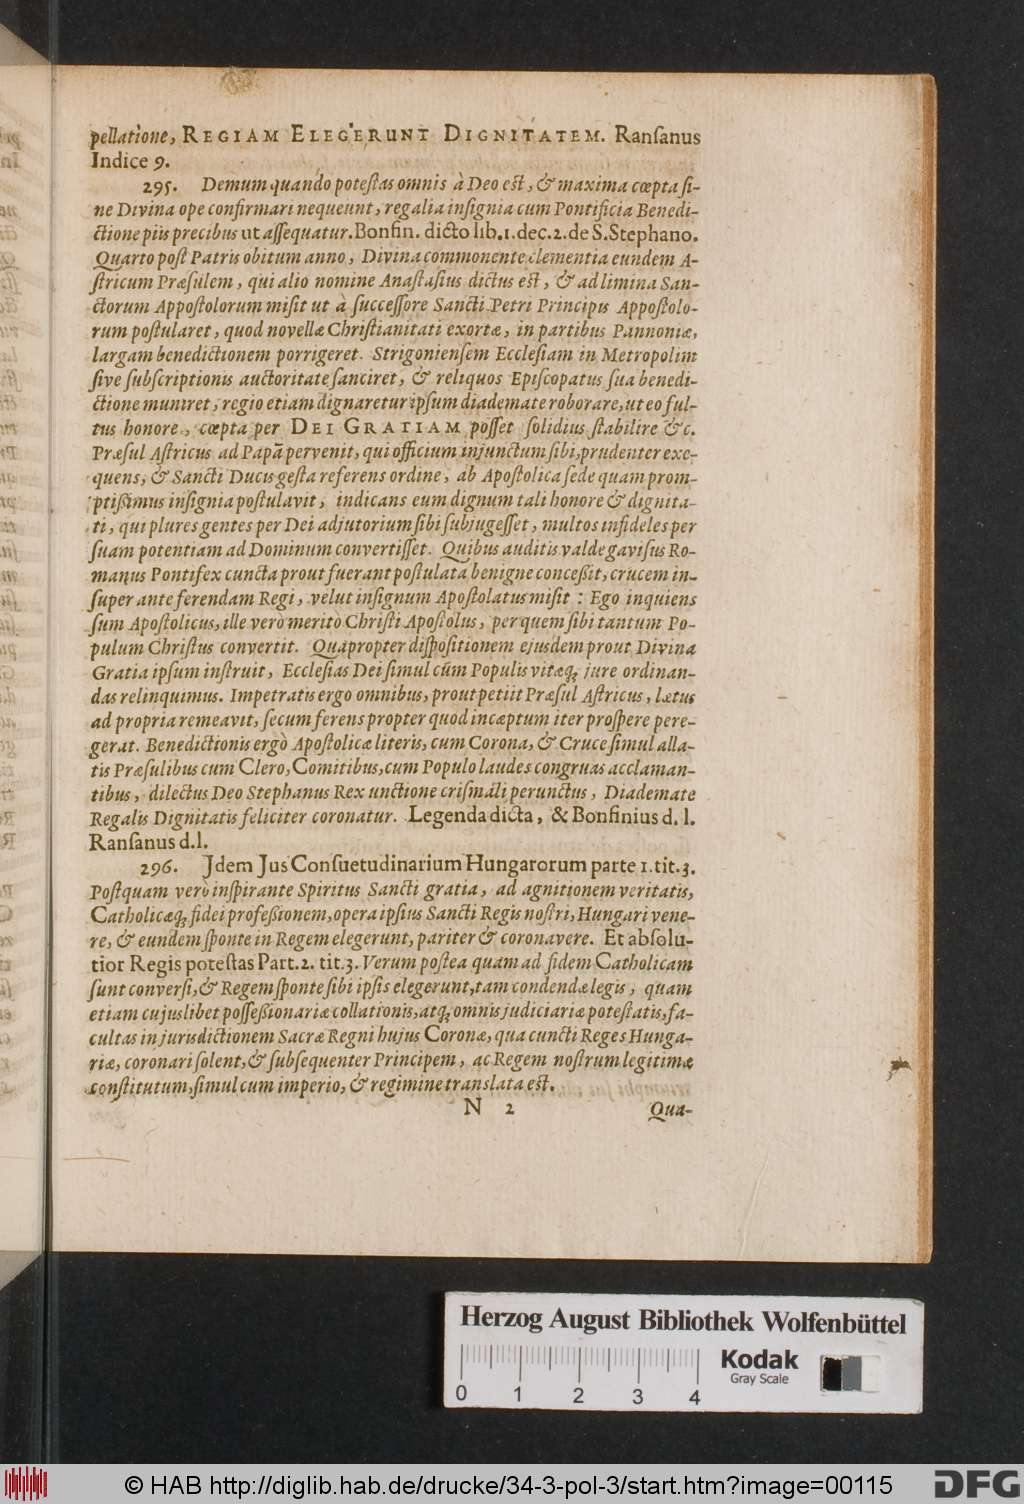 pellatione, REGIAM ELEGERUNT DIGNITATEM. Ranſanus
Indice 9.
295. Demum quando poteſtas omnis à Deo eſt, & maxima cœpta ſi-
ne Divina ope confirmari nequeunt, regalia inſignia cum Pontificia Benedi-
ctione piis precibus ut aſſequatur. Bonfin. dicto lib. 1. dec. 2. de S. Stephano.
Quarto poſt Patris obitum anno, Divina commonente clementia eundem A-
ſtricum Præſulem, qui alio nomine Anaſtaſius dictus eſt, & ad limina San-
ctorum Appoſtolorum miſit ut à ſucceſſore Sancti Petri Principis Appoſtolo-
rum poſtularet, quod novellæ Chriſtianitati exortæ, in partibus Pannoniæ,
largam benedictionem porrigeret. Strigonienſem Eccleſiam in Metropolim
ſive ſubſcriptionis auctoritate ſanciret, & reliquos Epiſcopatus ſua benedi-
ctione muniret, regio etiam dignaretur ipſum diademate roborare, ut eo ful-
tus honore, cœpta per DEI GRATIAM poſſet ſolidius ſtabilire &c.
Præſul Aſtricus ad Papā pervenit, qui officium injunctum ſibi, prudenter exe-
quens, & Sancti Ducis geſta referens ordine, ab Apoſtolica ſede quam prom-
ptißimus inſignia poſtulavit, indicans eum dignum tali honore & dignita-
ti, qui plures gentes per Dei adjutorium ſibi ſubjugeſſet, multos infideles per
ſuam potentiam ad Dominum convertiſſet. Quibus auditis valde gaviſus Ro-
manus Pontifex cuncta prout fuerant poſtulata benigne conceßit, crucem in-
ſuper ante ferendam Regi, velut inſignum Apoſtolatus miſit : Ego inquiens
ſum Apoſtolicus, ille verò meritò Chriſti Apoſtolus, per quem ſibi tantum Po-
pulum Chriſtus convertit. Quapropter diſpoſitionem ejusdem prout Divina
Gratia ipſum inſtruit, Eccleſias Dei ſimul cūm Populis vitæq; jure ordinan-
das relinquimus. Impetratis ergo omnibus, prout petiit Præſul Aſtricus, lætus
ad propria remeavit, ſecum ferens propter quod incæptum iter proſpere pere-
gerat. Benedictionis ergò Apoſtolicæ literis, cum Corona, & Cruce ſimul alla-
tis Præſulibus cum Clero, Comitibus, cum Populo laudes congruas acclaman-
tibus, dilectus Deo Stephanus Rex unctione criſmali perunctus, Diademate
Regalis Dignitatis feliciter coronatur. Legenda dicta, & Bonfinius d. l.
Ranſanus d. l.
296. Jdem Jus Conſuetudinarium Hungarorum parte 1. tit. 3.
Poſtquam verò inſpirante Spiritus Sancti gratia, ad agnitionem veritatis,
Catholicæq; fidei profeßionem, opera ipſius Sancti Regis noſtri, Hungari vene-
re, & eundem ſponte in Regem elegerunt, pariter & coronavere. Et abſolu-
tior Regis poteſtas Part. 2. tit. 3. Verum poſtea quam ad fidem Catholicam
ſunt converſi, & Regem ſponte ſibi ipſis elegerunt, tam condendæ legis, quam
etiam cujuslibet poſſeßionariæ collationis, atq; omnis judiciariæ poteſtatis, fa-
cultas in jurisdictionem Sacræ Regni hujus Coronæ, qua cuncti Reges Hunga-
riæ, coronari ſolent, & ſubſequenter Principem, ac Regem noſtrum legitimæ
conſtitutum, ſimul cum imperio, & regimine translata eſt.
N 2 Qua-
Herzog August Bibliothek Wolfenbüttel
Kodak
Gray Scale
0 1 2 3 4
© HAB http://diglib.hab.de/drucke/34-3-pol-3/start.htm?image=00115
DFG